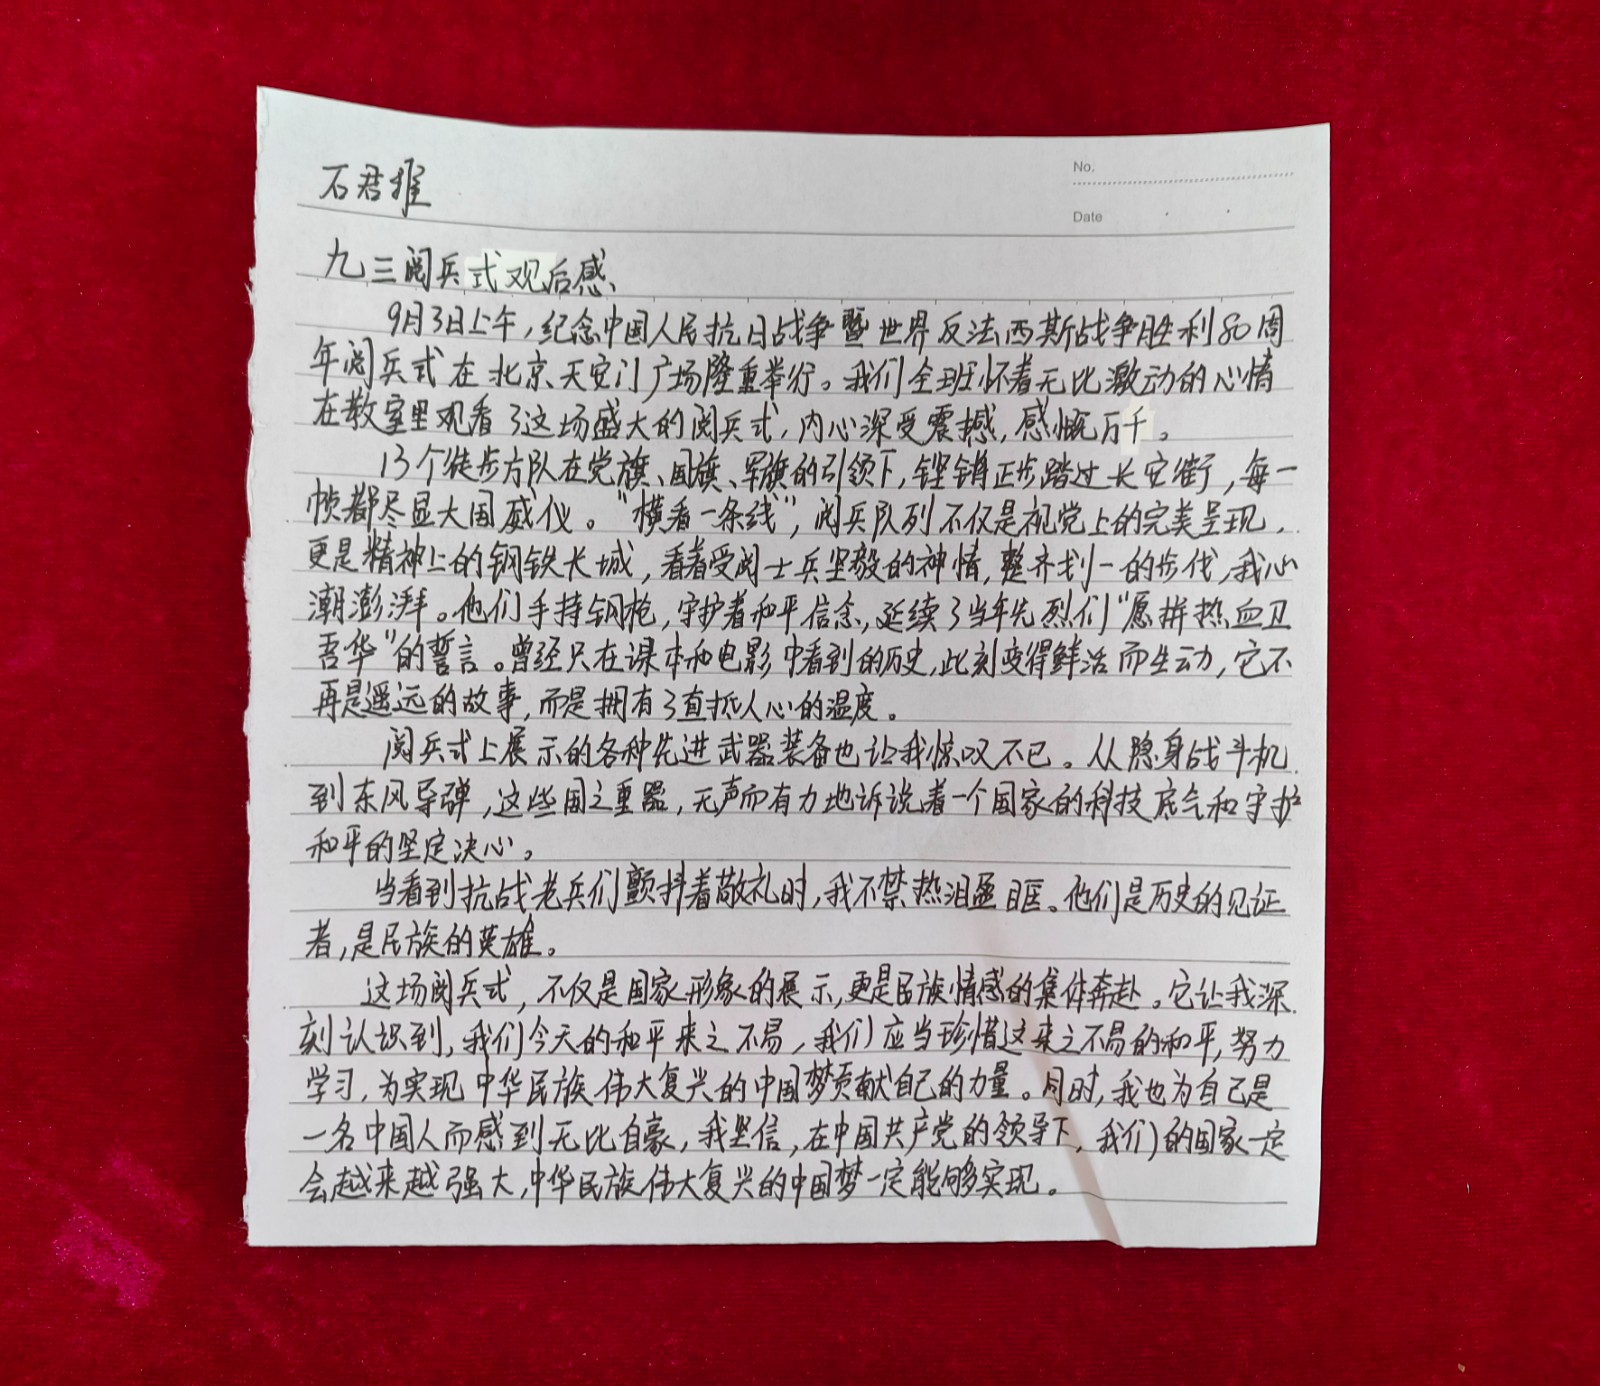 石君雅
No.
Date
九三阅兵式观后感
9月3日上午,纪念中国人民抗日战争暨世界反法西斯战争胜利80周
年阅兵式在北京天安门广场隆重举行。我们全班怀着无比激动的心情
在教室里观看了这场盛大的阅兵式,内心深受震撼,感慨万千。
13个徒步方队在党旗、国旗、军旗的引领下,铿锵正步踏过长安街,每一
帧都尽显大国威仪。“横看一条线”,阅兵队列不仅是视觉上的完美呈现,
更是精神上的钢铁长城,看着受阅士兵坚毅的神情,整齐划一的步伐,我心
潮澎湃。他们手持钢枪,守护着和平信念,延续了当年先烈们“愿拼热血卫
吾华”的誓言。曾经只在课本和电影中看到的历史,此刻变得鲜活而生动,它不
再是遥远的故事,而是拥有了直抵人心的温度。
阅兵式上展示的各种先进武器装备也让我惊叹不已。从隐身战斗机
到东风导弹,这些国之重器,无声而有力地诉说着一个国家的科技底气和守护
和平的坚定决心。
当看到抗战老兵们颤抖着敬礼时,我不禁热泪盈眶。他们是历史的见证
者,是民族的英雄。
这场阅兵式,不仅是国家形象的展示,更是民族情感的集体奔赴。它让我深
刻认识到,我们今天的和平来之不易,我们应当珍惜这来之不易的和平,努力
学习,为实现中华民族伟大复兴的中国梦贡献自己的力量。同时,我也为自己是
一名中国人而感到无比自豪,我坚信,在中国共产党的领导下,我们的国家一定
会越来越强大,中华民族伟大复兴的中国梦一定能够实现。